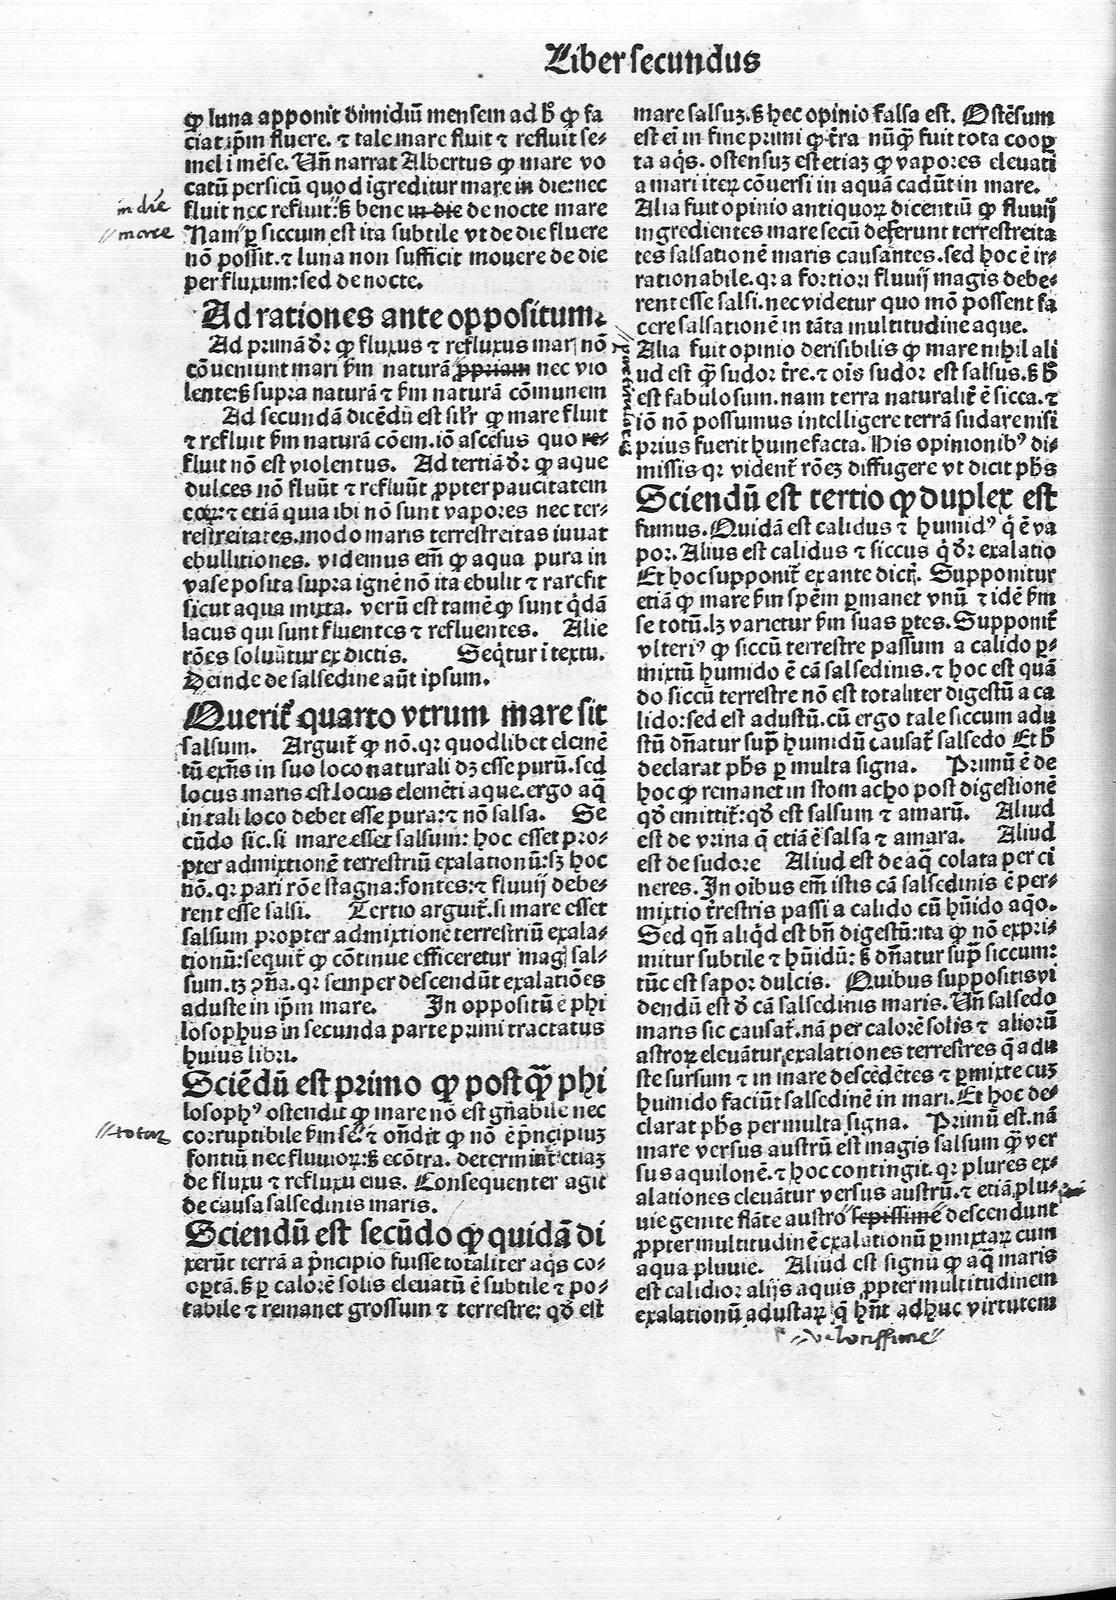 Liber secundus
ꝙ luna apponit dimidiū mensem ad hͦ ꝙ fa
ciat ip̄m fluere. ⁊ tale mare fluit ⁊ refluit se⸗
mel i mēse. Un̄ narrat Albertus ꝙ mare vo
catū persicū quod igreditur mare in die: nec
in die
fluit nec refluit: sꝫ bene in die de nocte mare
mare
Nam ꝑ siccum est ita subtile vt de die fluere
nō possit. ⁊ luna non sufficit mouere de die
per fluxum: sed de nocte.
Ad rationes ante oppositum.
Ad primā dr̄ ꝙ fluxus ⁊ refluxus mari nō
cōueniunt mari ẜm naturā ꝓpriam nec vio
lente: sꝫ supra naturā ⁊ ẜm naturā cōmunem
Ad secundā dicēdū est sil'r ꝙ mare fluit
⁊ refluit ẜm naturā cōem. iō ascēsus quo re⸗
fluit nō est violentus. Ad tertiā dr̄ ꝙ aque
dulces nō fluūt ⁊ refluūt ꝓpter paucitatem
eoꝝ: ⁊ etiā quia ibi nō sunt vapores nec ter⸗
restreitates. modo maris terrestreitas iuuat
ebullitiones. videmus em̄ ꝙ aqua pura in
vase posita supra ignē nō ita ebulit ⁊ rarefit
sicut aqua mixta. verū est tamē ꝙ sunt q̇dā
lacus qui sunt fluentes ⁊ refluentes. Alie
rōes soluūtur ex dictis. Seq̇tur i textu.
Deinde de salsedine aūt ipsum.
Querit̄ quarto vtrum mare sit
salsum. Arguit̄ ꝙ nō. qꝛ quodlibet elemē
tū exn̄s in suo loco naturali dꝫ esse purū. sed
locus maris est locus elemēti aque. ergo aq̄
in tali loco debet esse pura: ⁊ nō salsa. Se
cūdo sic. si mare esset salsum: hoc esset pro⸗
pter admixtionē terrestriū exalationū: sꝫ hoc
nō. qꝛ pari rōe stagna: fontes: ⁊ fluuij debe⸗
rent esse salsi. Tertio arguit̄. si mare esset
salsum propter admixtionē terrestriū exala⸗
tionū: sequit̄ ꝙ cōtinue efficeretur mag̛ sal⸗
sum. tꝫ ꝯn̄a. qꝛ semper descendūt exalatiōes
aduste in ip̄m mare. In oppositū ē phi
losophus in secunda parte primi tractatus
huius libri.
Sciēdū est primo ꝙ postꝙ̄ phi
losophꝰ ostendit ꝙ mare nō est gn̄abile nec
totaꝫ
corruptibile ẜm se ⁊ on̄dit ꝙ nō ē p̄ncipiuꝫ
fontiū nec fluuioꝝ: sꝫ ecōtra. determinat etiaꝫ
de fluxu ⁊ refluxu eius. Consequenter agit
de causa salsedinis maris.
Sciendū est secūdo ꝙ quidā di
xerūt terrā a p̄ncipio fuisse totaliter aq̇s co⸗
optā. sꝫ ꝑ calorē solis eleuatū ē subtile ⁊ po⸗
tabile ⁊ remanet grossum ⁊ terrestre: qḋ est
mare salsuꝫ. sꝫ hec opinio falsa est. Ostēsum
est ei̅ in fine primi ꝙ tr̄a nūꝙ̄ fuit tota cooꝑ
ta aq̇s. ostensuꝫ est etiaꝫ ꝙ vapores eleuati
a mari iteꝝ cōuersi in aquā cadūt in mare.
Alia fuit opinio antiquoꝝ dicentiū ꝙ fluuij
ingredientes mare secū deferunt terrestreita
tes salsationē maris causantes. sed hoc ē ir⸗
rationabile. qꝛ a fortiori fluuij magis debe⸗
rent esse salsi. nec videtur quo mō possent fa
cere salsationē in tāta multitudine aque.
Alia fuit opinio derisibilis ꝙ mare nihil ali
ud est ꝙ̄ sudor tr̄e. ⁊ oīs sudor est salsus. sꝫ hͦ
est fabulosum. nam terra naturalit̄ ē sicca. ⁊
iō nō possumus intelligere terrā sudare nisi
prius fuerit humefacta. His opinionibꝰ di⸗
missis qꝛ vident̄ rōeꝫ diffugere vt dicit ph̄s
Sciendū est tertio ꝙ duplex est
fumus. Quidā est calidus ⁊ humidꝰ q̇ ē va
por. Alius est calidus ⁊ siccus q̇ dr̄ exalatio
Et hoc supponit̄ ex ante dict̛. Supponitur
etiā ꝙ mare ẜm spēm ꝑmanet vnū ⁊ idē ẜm
se totū. lꝫ varietur ẜm suas ꝑtes. Supponit̄
vlteriꝰ ꝙ siccū terrestre passum a calido ꝑ⸗
mixtū humido ē cā salsedinis. ⁊ hoc est quā
do siccū terrestre nō est totaliter digestū a ca
lido: sed est adustū. cū ergo tale siccum adu
stū dn̄atur suꝑ humidū causat̄ salsedo Et hͦ
declarat ph̄s ꝑ multa signa. Primū ē de
hoc ꝙ remanet in stomacho post digestionē
qḋ emittit̄: qḋ est salsum ⁊ amarū. Aliud
est de vrina q̄ etiā ē salsa ⁊ amara. Aliud
est de sudore Aliud est de aq̄ colata per ci
neres. In oībus em̄ istis cā salsedinis ē per⸗
mixtio tr̄restris passi a calido cū hūido aq̊o.
Sed qn̄ aliq̇d est bn̄ digestū: ita ꝙ nō expri⸗
mitur subtile ⁊ hūidū: sꝫ dn̄atur suꝑ siccum:
tūc est sapor dulcis. Quibus suppositis vi
dendū est ḋ cā salsedinis maris. Un̄ salsedo
maris sic causat̄. nā per calorē solis ⁊ alioꝝ
astroꝝ eleuātur exalationes terrestres q̄ adu
ste sursum ⁊ in mare descēdētes ⁊ ꝑmixte cuꝫ
humido faciūt salsedinē in mari. Et hoc de⸗
clarat ph̄s per multa signa. Primū est. nā
mare versus austrū est magis salsum ꝙ̄ ver
sus aquilonē. ⁊ hoc contingit. qꝛ plures ex⸗
alationes eleuātur versus austrū. ⁊ etiā plu⸗
uie genite flāte austro sepissime descendunt
ꝓpter multitudinē exalationū ꝑmixtaꝝ cum
aqua pluuie. Aliud est signū ꝙ aq̄ maris
est calidior alijs aquis ꝓpter multitudinem
exalationū adustaꝝ q̄ hn̄t adhuc virtutem
velocissime